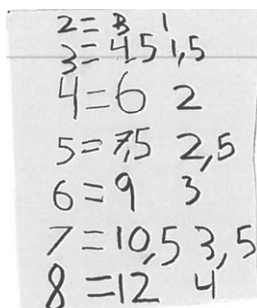 2 = 3 1
3 = 4 5 1,5
4 = 6 2
5 = 7,5 2,5
6 = 9 3
7 = 10,5 3,5
8 = 12 4